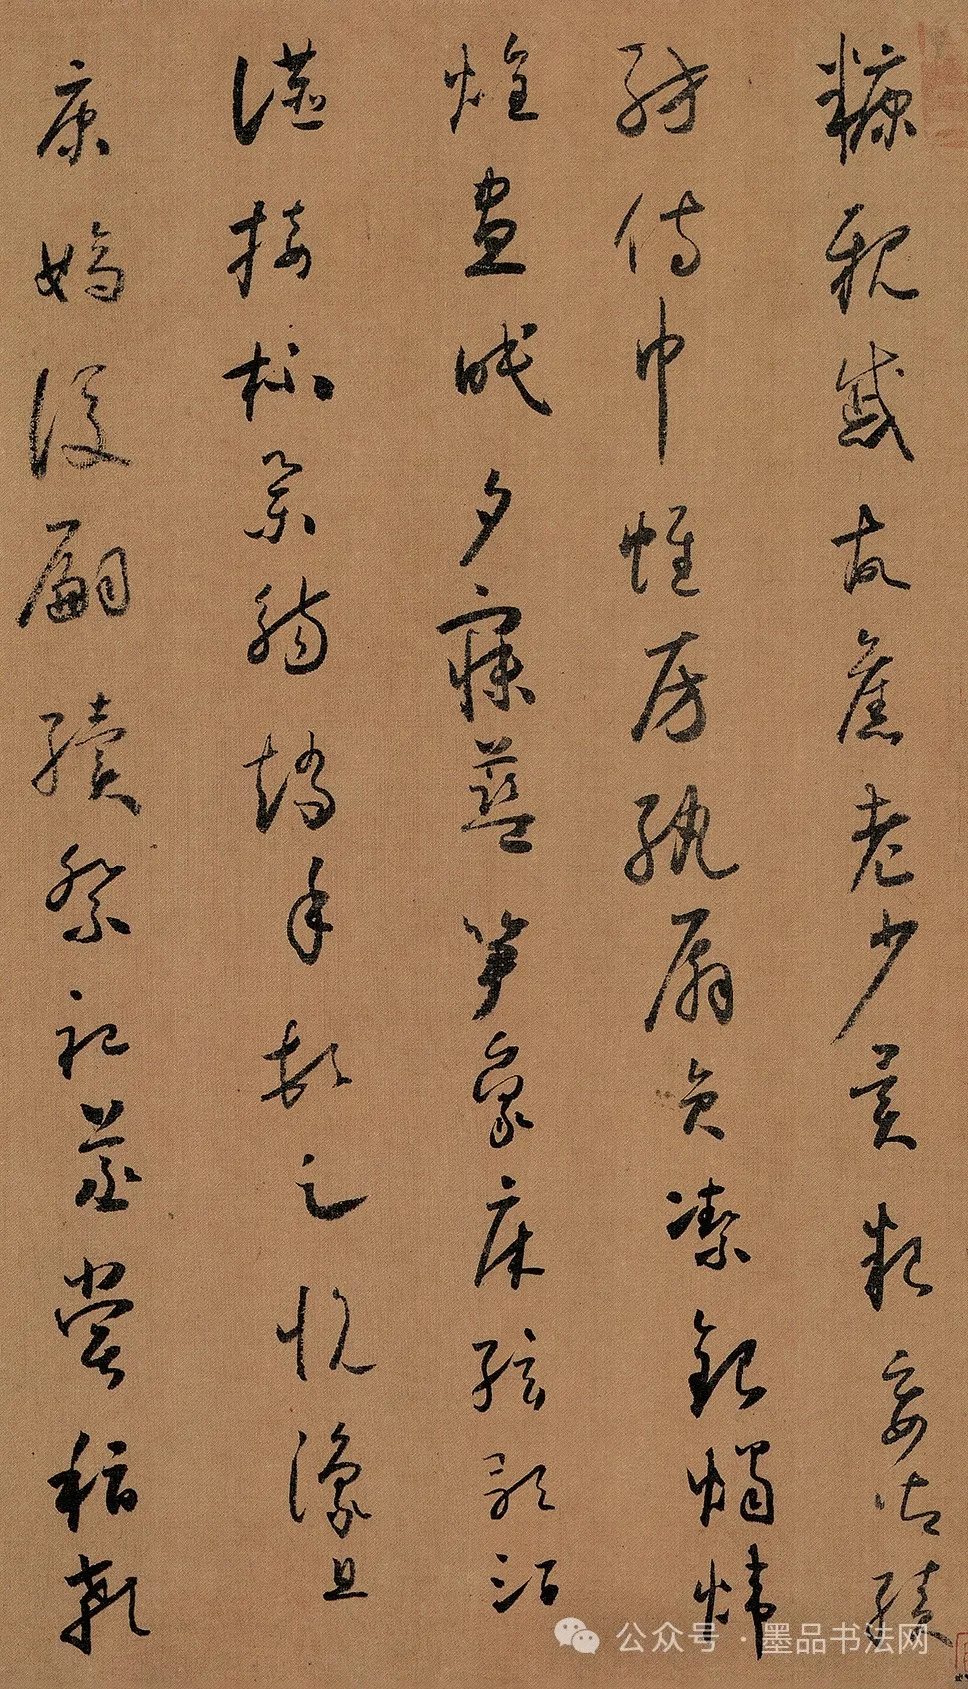 糠親戚故舊老少異粮妾御績
紡侍巾帷房紈扇員潔銀燭煒
煌晝眠夕寐藍笋象床弦歌酒
讌接杯舉觴矯手頓足悦豫且
康嫡後嗣續祭祀蒸嘗稽顙
公众号 · 墨品书法网